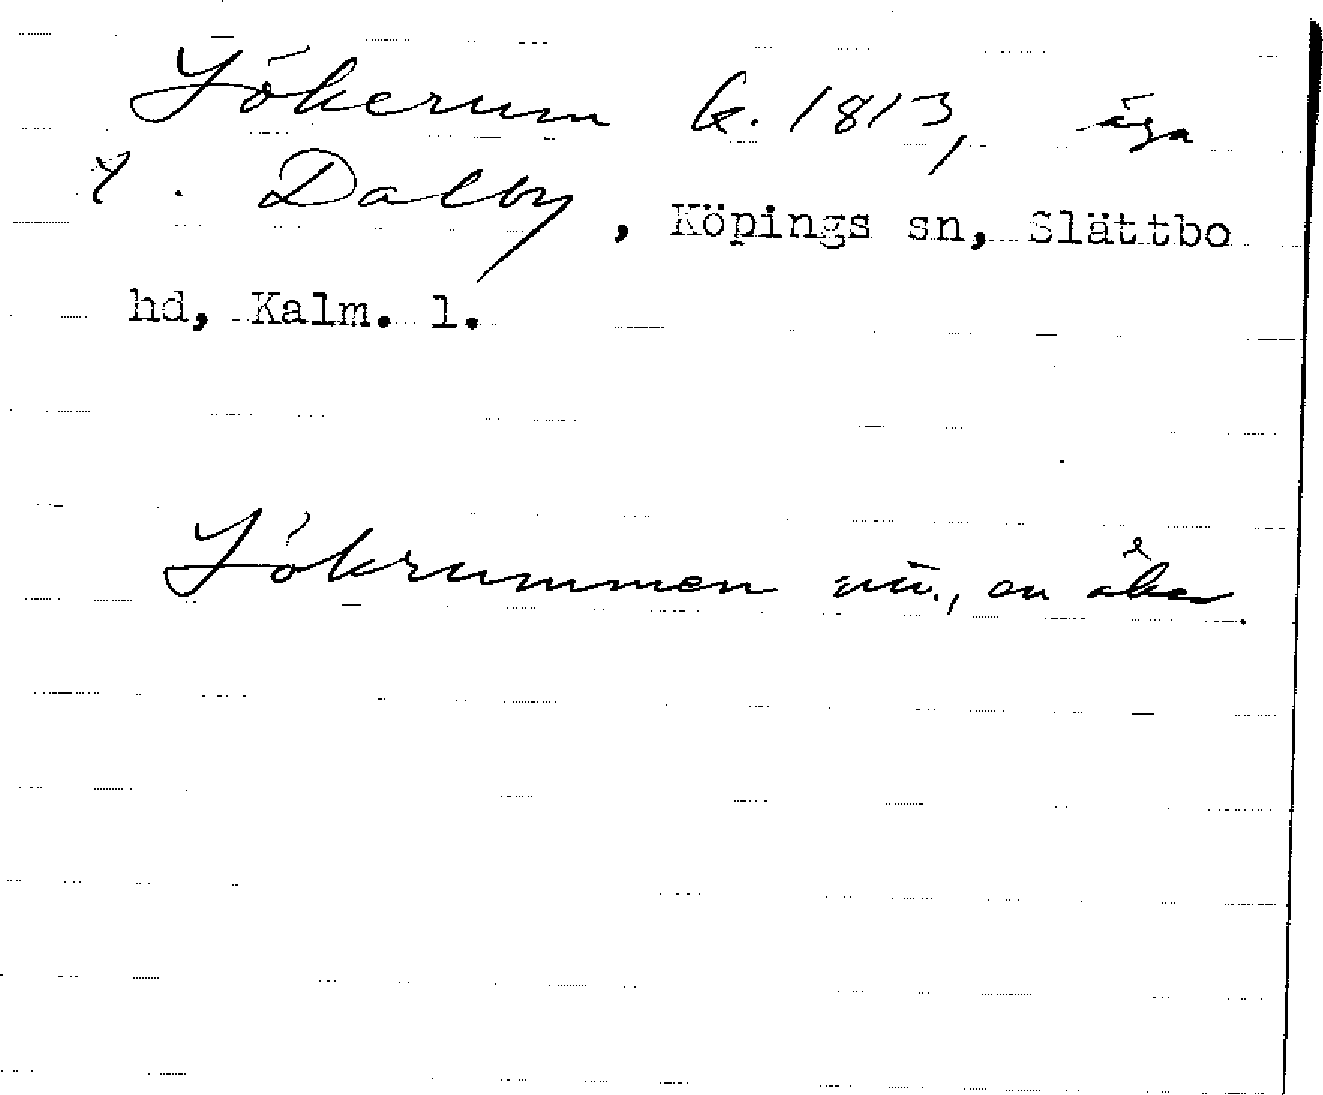 Sökerum k. 1813, äga
t. Dalby, Köpings sn, Slättbo
hd, Kalm. l.
Sökrummen nu., en åker.